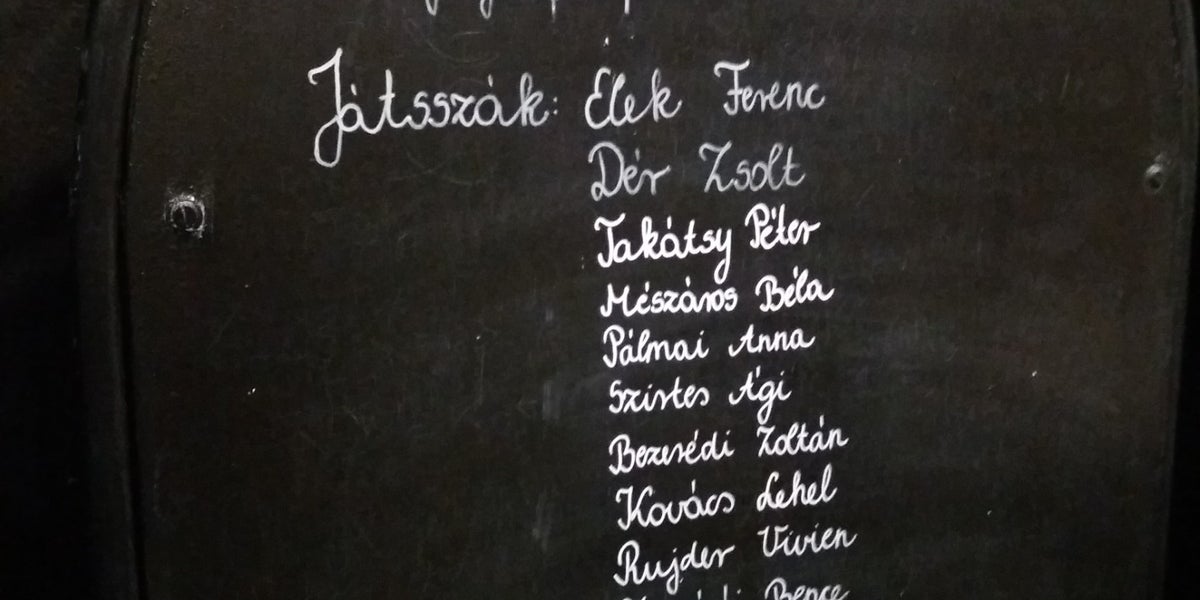 Játsszák: Elek Ferenc
Dér Zsolt
Takátsy Péter
Mészáros Béla
Pálmai Anna
Szirtes Ági
Bezerédi Zoltán
Kovács Lehel
Rujder Vivien
Bence